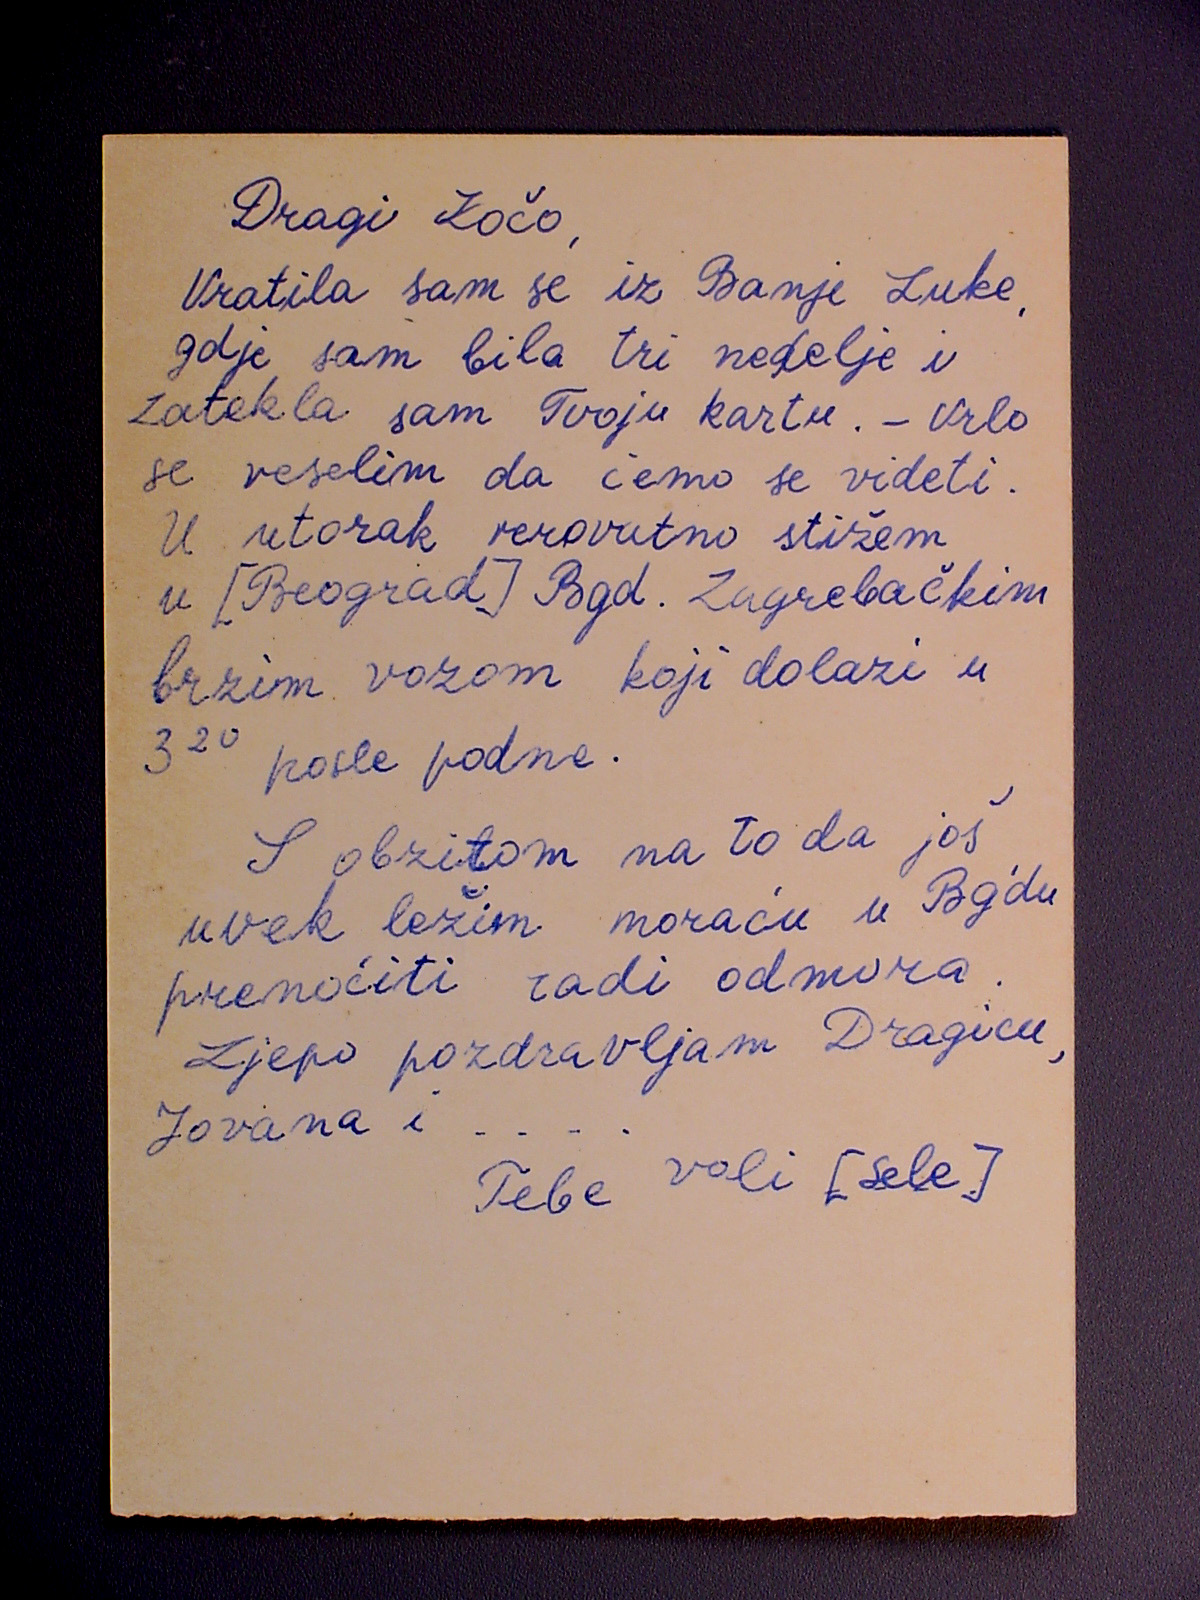 Dragi Zočo,
Vratila sam se iz Banje Luke,
gdje sam bila tri nedelje i
zatekla sam Tvoju kartu. – Vrlo
se veselim da ćemo se videti.
U utorak verovatno stižem
u [Beograd] Bgd. Zagrebačkim
brzim vozom koji dolazi u
3²⁰ posle podne.
S obzirom na to da još
uvek ležim moraću u Bgdu
prenoćiti radi odmora.
Ljepo pozdravljam Dragicu,
Jovana i . . . .
Tebe voli [Sele]